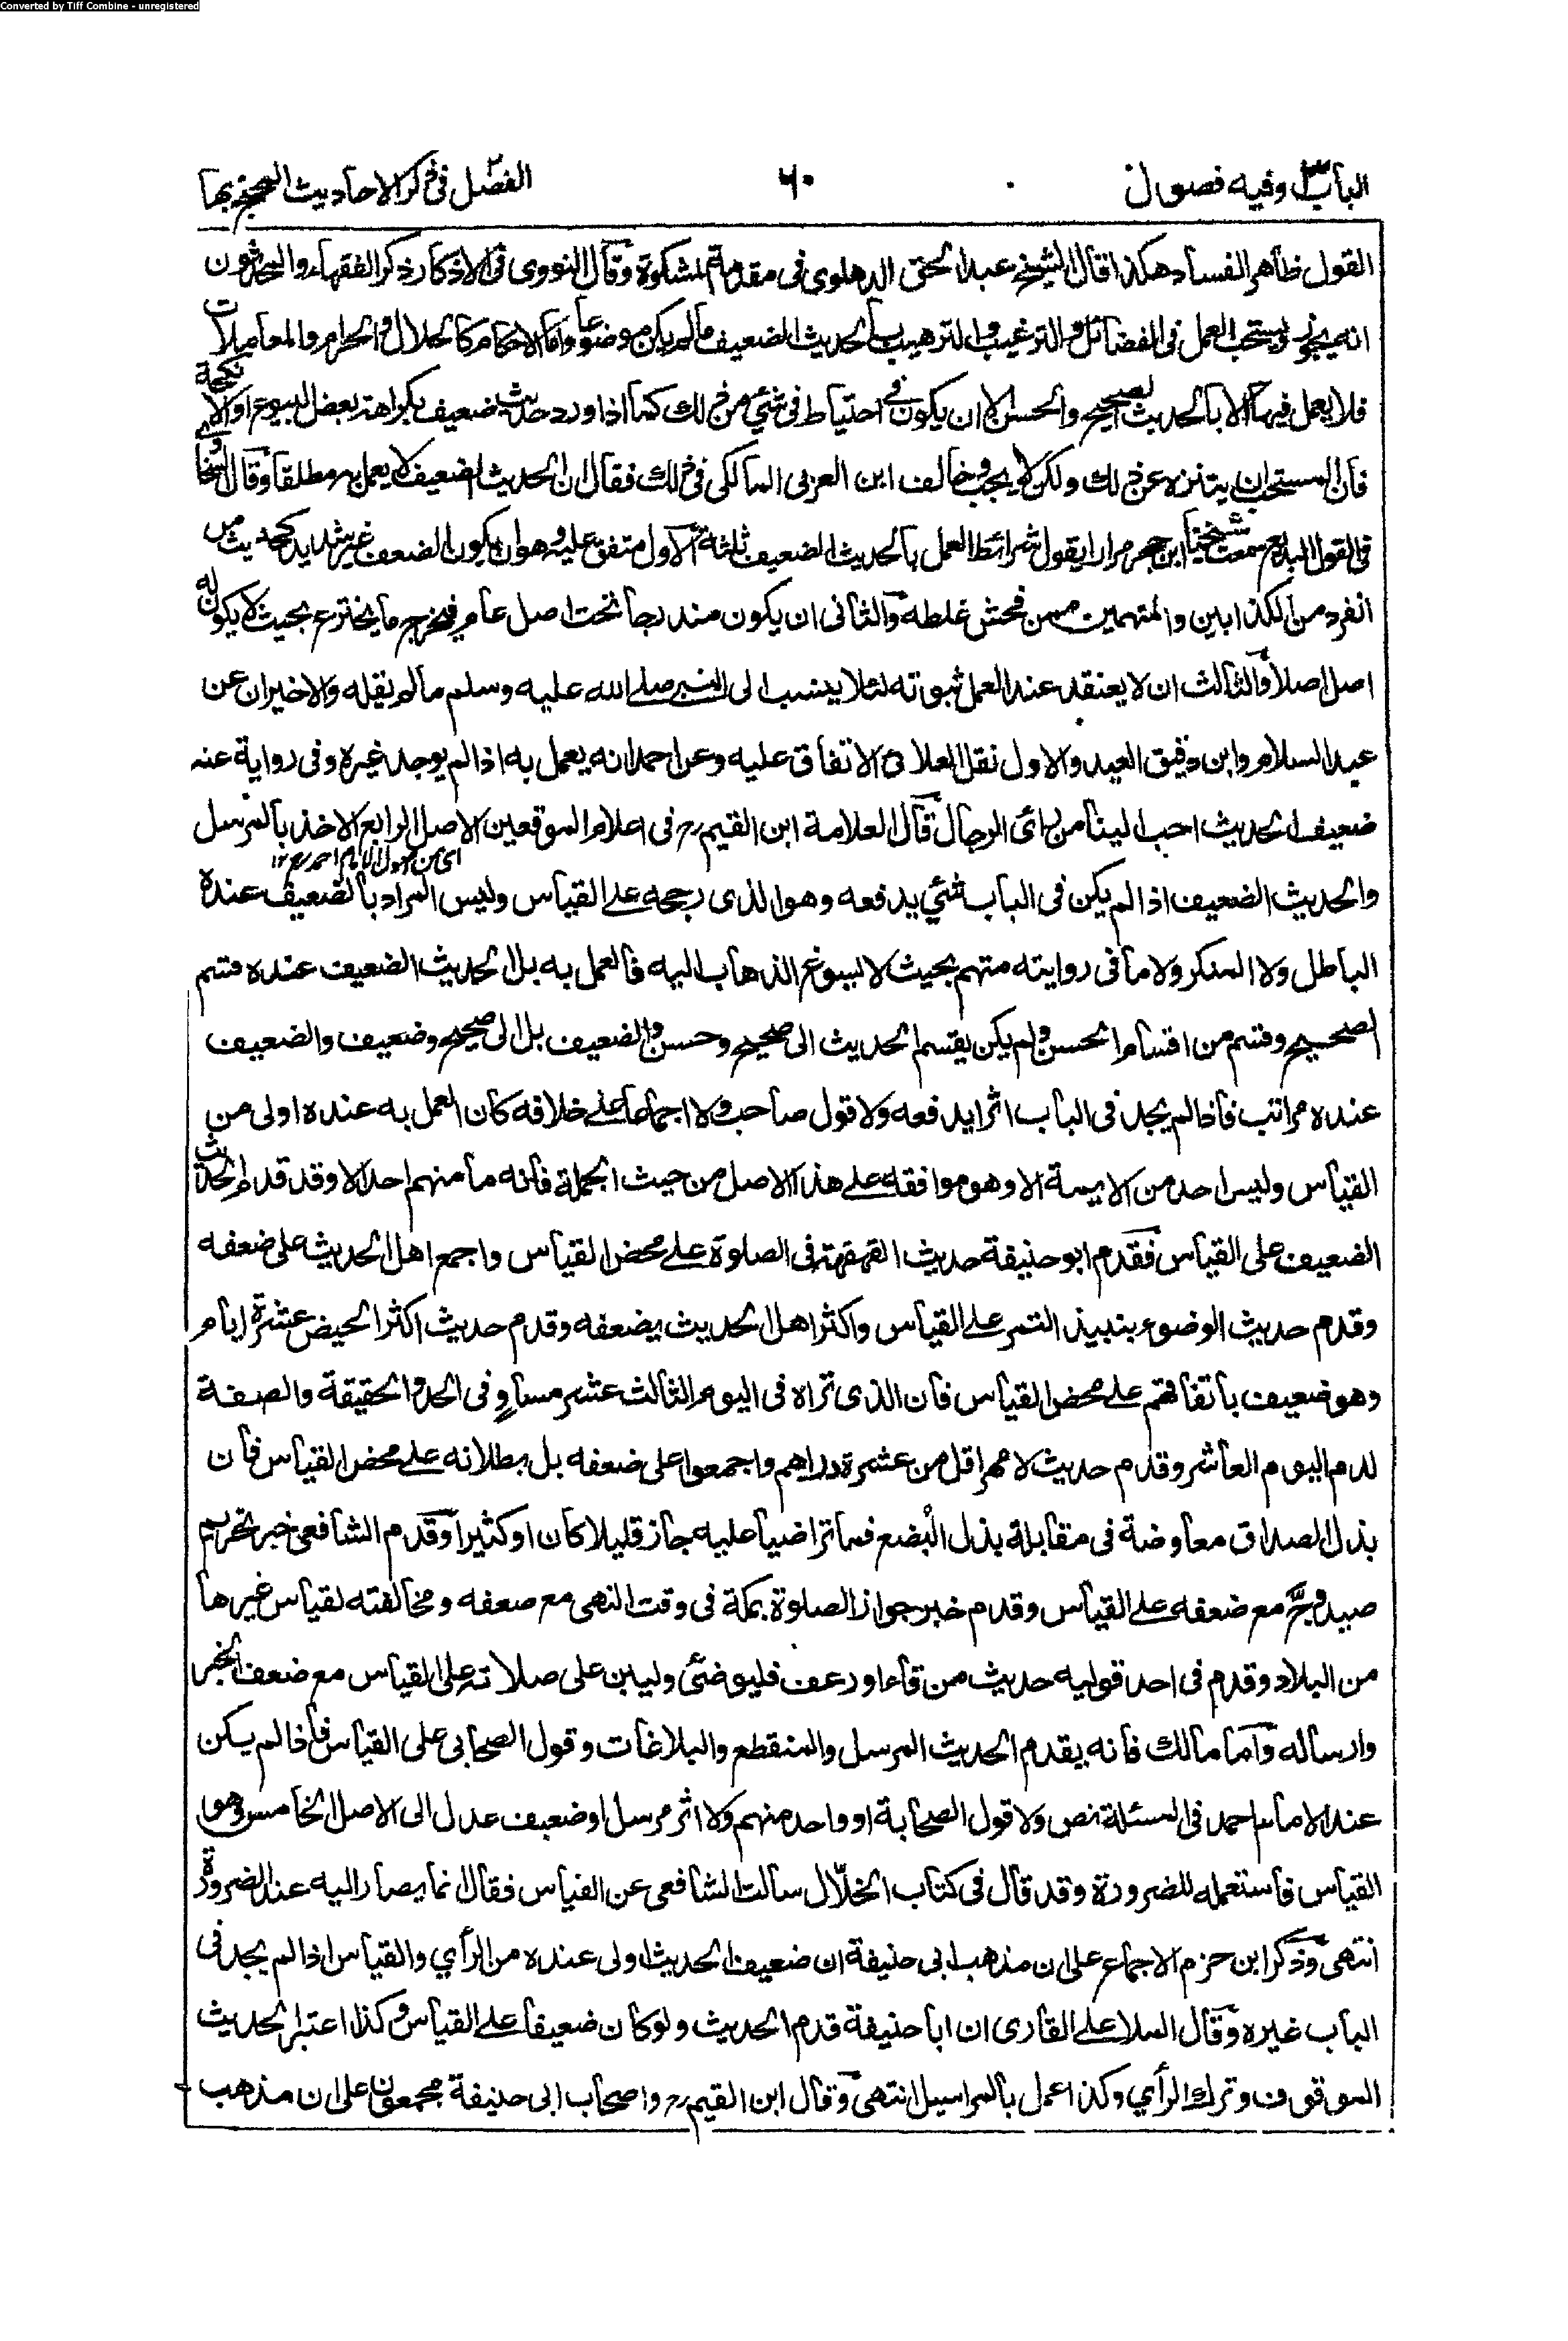 Converted by Tiff Combine - unregistered
الباب٣ وفيه فصول ن
٦٠
الفصل٢ فى ذكر الاحاديث الصحيحة بها
القول ظاهر الفساد هكذا قال الشيخ عبد الحق الدهلوى فى مقدمة المشكوة وقال النووى فى الاذكار ذكر الفقهاء والمحدثون
انه يجوز ويستحب العمل فى الفضائل والترغيب والترهيب بالحديث الضعيف ما لم يكن موضوعا واما الاحكام كالحلال والحرام والمعاملات
فلا يعمل فيها الا بالحديث الصحيح والحسن الا ان يكون فى احتياط فى شئ من ذلك كما اذا ورد حديث ضعيف بكراهة بعض البيوع او الانكحة
فان المستحب ان يتنزه عن ذلك ولكن لا يجب وخالف ابن العربى المالكى فى ذلك فقال ان الحديث الضعيف لا يعمل به مطلقا وقال السخاوى
فى القول البديع سمعت شيخنا ابن حجر مرارا يقول شرائط العمل بالحديث الضعيف ثلثة الاول متفق عليه وهو ان يكون الضعف غير شديد كحديث من
انفرد من الكذابين والمتهمين ممن فحش غلطه والثانى ان يكون مندرجا تحت اصل عام فيخرج ما يخترع بحيث لا يكون له
اصل اصلا والثالث ان لا يعتقد عند العمل ثبوته لئلا ينسب الى النبي صلى الله عليه وسلم ما لم يقله والاخيران عن
عبد السلام وابن دقيق العيد والاول نقل العلائى الاتفاق عليه وعن احمد انه يعمل به اذا لم يوجد غيره وفى رواية عنه
ضعيف الحديث احب الينا من رائ الرجال قال العلامة ابن القيم رح فى اعلام الموقعين الاصل الرابع الاخذ بالمرسل
اى من اصول الامام احمد رح ١٢
والحديث الضعيف اذا لم يكن فى الباب شئ يدفعه وهو الذى رجحه على القياس وليس المراد بالضعيف عنده
الباطل ولا المنكر ولا ما فى روايته متهم بحيث لا يسوغ الذهاب اليه فالعمل به بل الحديث الضعيف عنده قسم
الصحيح وقسم من اقسام الحسن ولم يكن يقسم الحديث الى صحيح وحسن والضعيف بل الى صحيح وضعيف والضعيف
عنده مراتب فاذا لم يجد فى الباب اثرا يدفعه ولا قول صاحب ولا اجماعا على خلافه كان العمل به عنده اولى من
القياس وليس احد من الايمة الا وهو موافقه على هذا الاصل من حيث الجملة فانه ما منهم احد الا وقد قدم الحديث
الضعيف على القياس فقدم ابو حنيفة حديث القهقهة فى الصلوة على محض القياس واجمع اهل الحديث على ضعفه
وقدم حديث الوضوء بنبيذ التمر على القياس واكثر اهل الحديث يضعفه وقدم حديث اكثر الحيض عشرة ايام
وهو ضعيف باتفاقهم على محض القياس فان الذى تراه فى اليوم الثالث عشر مساوٍ فى الحد والحقيقة والصفة
لدم اليوم العاشر وقدم حديث لا مهر اقل من عشرة دراهم واجمعوا على ضعفه بل بطلانه على محض القياس فان
بذل الصداق معاوضة فى مقابلة بذل البُضع فما تراضيا عليه جاز قليلا كان او كثيرا وقدم الشافعى خبر تحريم
صيد وجّ مع ضعفه على القياس وقدم خبر جواز الصلوة بمكة فى وقت النهى مع ضعفه ومخالفته لقياس غيرها
من البلاد وقدم فى احد قوليه حديث من قاء او رعف فليوضئ وليبن على صلاته على القياس مع ضعف الخبر
وارساله واما مالك فانه يقدم الحديث المرسل والمنقطع والبلاغات وقول الصحابى على القياس فاذا لم يكن
عند الامام احمد فى المسئلة نص ولا قول الصحابة او واحد منهم ولا اثر مرسل او ضعيف عدل الى الاصل الخامس وهو
القياس فاستعمله للضرورة وقد قال فى كتاب الخلّال سالت الشافعى عن القياس فقال انما يصار اليه عند الضرورة
انتهى وذكر ابن حزم الاجماع على ان مذهب ابى حنيفة ان ضعيف الحديث اولى عنده من الرأي والقياس اذا لم يجد فى
الباب غيره وقال الملا على القارى ان ابا حنيفة قدم الحديث ولو كان ضعيفا على القياس وكذا اعتبر الحديث
الموقوف وترك الرأي وكذا عمل بالمراسيل انتهى وقال ابن القيم رح واصحاب ابى حنيفة مجمعون على ان مذهب